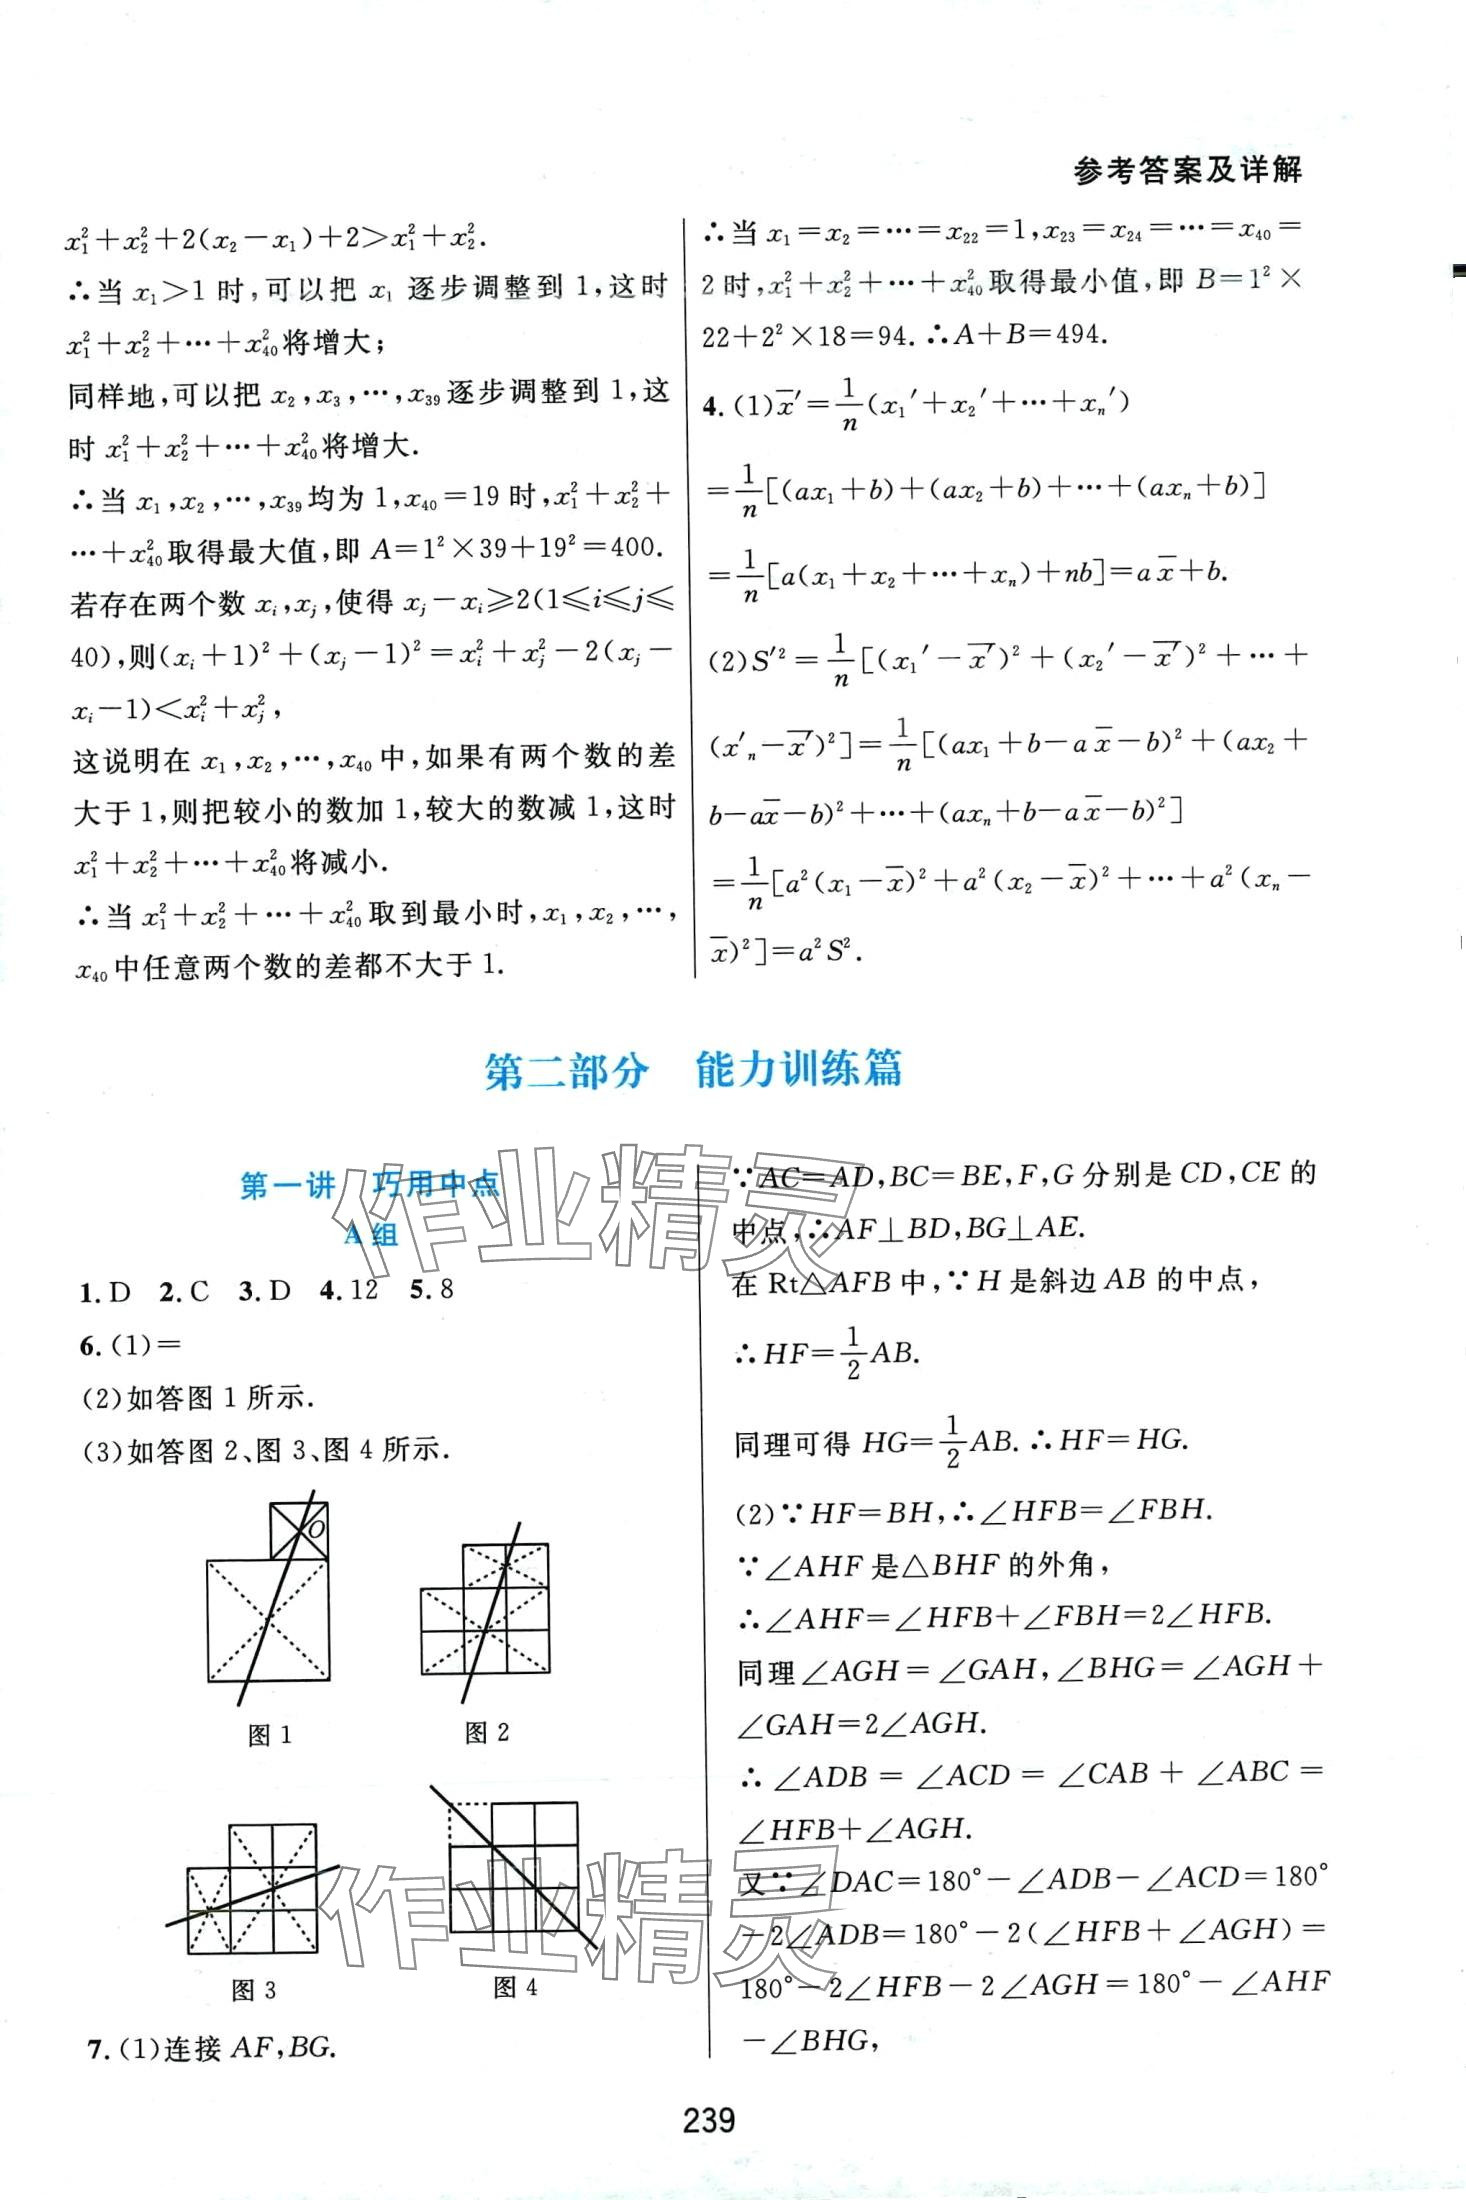 参考答案及详解
x₁²+x₂²+2(x₂-x₁)+2>x₁²+x₂².
∴当 x₁>1 时,可以把 x₁ 逐步调整到 1,这时
x₁²+x₂²+…+x₄₀²将增大;
同样地,可以把 x₂,x₃,…,x₃₉逐步调整到 1,这
时 x₁²+x₂²+…+x₄₀²将增大.
∴当 x₁,x₂,…,x₃₉均为 1,x₄₀=19 时,x₁²+x₂²+
…+x₄₀²取得最大值,即 A=1²×39+19²=400.
若存在两个数 xᵢ,xⱼ,使得 xⱼ-xᵢ⩾2(1⩽i⩽j⩽
40),则(xᵢ+1)²+(xⱼ-1)²=xᵢ²+xⱼ²-2(xⱼ-
xᵢ-1)<xᵢ²+xⱼ²,
这说明在 x₁,x₂,…,x₄₀中,如果有两个数的差
大于 1,则把较小的数加 1,较大的数减 1,这时
x₁²+x₂²+…+x₄₀²将减小.
∴当 x₁²+x₂²+…+x₄₀²取到最小时,x₁,x₂,…,
x₄₀中任意两个数的差都不大于 1.
∴当 x₁=x₂=…=x₂₂=1,x₂₃=x₂₄=…=x₄₀=
2时,x₁²+x₂²+…+x₄₀²取得最小值,即 B=1²×
22+2²×18=94.∴A+B=494.
4.(1)x̄′=1/n(x₁′+x₂′+…+xₙ′)
=1/n[(ax₁+b)+(ax₂+b)+…+(axₙ+b)]
=1/n[a(x₁+x₂+…+xₙ)+nb]=ax̄+b.
(2)S′²=1/n[(x₁′-x̄′)²+(x₂′-x̄′)²+…+
(x′ₙ-x̄′)²]=1/n[(ax₁+b-ax̄-b)²+(ax₂+
b-ax̄-b)²+…+(axₙ+b-ax̄-b)²]
=1/n[a²(x₁-x̄)²+a²(x₂-x̄)²+…+a²(xₙ-
x̄)²]=a²S².
第二部分 能力训练篇
第一讲 巧用中点
A组
1.D 2.C 3.D 4.12 5.8
6.(1)=
(2)如答图 1 所示.
(3)如答图 2、图 3、图 4 所示.
O
图 1
图 2
图 3
图 4
7.(1)连接 AF,BG.
∵AC=AD,BC=BE,F,G 分别是 CD,CE 的
中点,∴AF⊥BD,BG⊥AE.
在 Rt△AFB 中,∵H 是斜边 AB 的中点,
∴HF=1/2AB.
同理可得 HG=1/2AB.∴HF=HG.
(2)∵HF=BH,∴∠HFB=∠FBH.
∵∠AHF 是△BHF 的外角,
∴∠AHF=∠HFB+∠FBH=2∠HFB.
同理∠AGH=∠GAH,∠BHG=∠AGH+
∠GAH=2∠AGH.
∴∠ADB=∠ACD=∠CAB+∠ABC=
∠HFB+∠AGH.
又∵∠DAC=180°-∠ADB-∠ACD=180°
-2∠ADB=180°-2(∠HFB+∠AGH)=
180°-2∠HFB-2∠AGH=180°-∠AHF
-∠BHG,
作业精灵
作业精灵
239